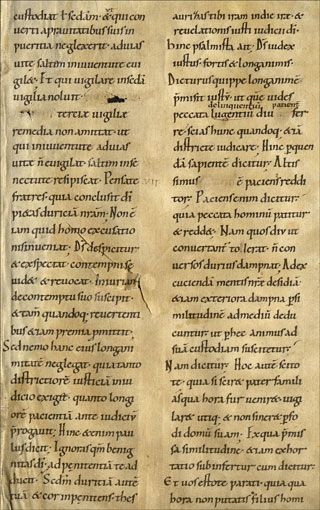 custodiat & sedam; & qui con
uerti a prauitatibus suis in
pueritia neglexerit. ad uias
uitę saltim in iuuentute eui
gil&. Et qui uigilare in sedā
uigilia noluit.
tercię uigilię
remedia non amittat. ut
qui in iuuentute ad uias
uitę n̄ euigilat. saltim in se
nectute resipiscat. Pensate
fratres quia conclusit d̄s
pietas duricia nr̄am. Non ē
iam quid homo excusatio
nis inueniat. D̄s despicitur
& exspectat. contempni se
uid& & reuocat. iniuriam
de contemptu suo suscipit.
& tam̄ quandoq; reuertenti
bus etiam premia promittit.
Sed nemo hanc eius longani
mitatē neglegat. quia tanto
districtiorē iusticiā in iu
dicio exig&. quanto longi
orē pacientiā ante iudiciū
prorogauit. Hinc & enim pau
lus dicit. Ignoras qm̄ benig
nitas dī ad penitentiā te ad
ducit. Sedm̄ duritia autē
tuā & cor inpenitens. thes
aurizas tibi iram in die irę. &
reuelationis iusti iudicii dī.
Hinc psalmista ait. D̄s iudex
iustus fortis & longanimis.
Dicturus quippe longanimē
p̄misit iustū. ut quē uides
delinquentiū patient
peccata lugentiū diu fer
re. scias hunc quandoq; etiā
districte iudicare. Hinc p quen
dā sapientē dicitur. Altis
simus ē paciens reddi
tor. Paciens enim dicitur.
quia peccata hominū patitur
& redd&. Nam quos diu ut
conuertant tolerat. n̄ con
uersos durius dampnat. Ad ex
cuciendā mentis nr̄ę desidiā.
etiam exteriora dampna p si
militudinē ad mediū dedu
cuntur. ut p hęc animus ad
suā custodiam suscitetur.
Nam dicitur. Hoc autē scito
te. quia si sciret pater famili
as qua hora fur ueniret. uigi
laret utiq; & non sineret pfo
di domū suam. Ex qua p̄mis
sa similitudine. etiam exhor
tatio subinfertur cum dicitur.
Et uos estote parati. quia qua
hora non putatis filius homi